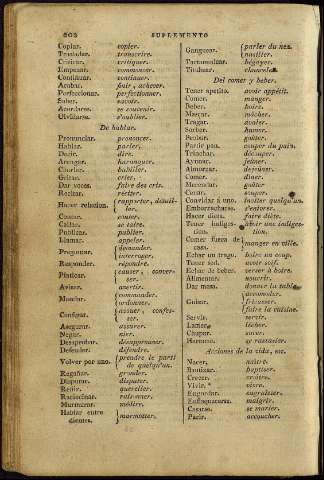 202 SUPLEMENTO
Copiar. copier.
Trasladar. transcrire.
Criticar. critiquer.
Empezar. commencer.
Continuar. continuer.
Acabar. finir, achever.
Perfeccionar. perfectionner.
Saber. savoir.
Acordarse. se souvenir.
Olvidarse. s'oublier.
De hablar.
Pronunciar. prononcer.
Hablar. parler.
Decir. dire.
Arengar. haranguer.
Charlar. babiller.
Gritar. crier.
Dar voces. faire des cris.
Recitar. réciter.
Hacer relacion. rapporter, détailler.
Cantar.
Callar. se taire.
Publicar. publier.
Llamar. appeler.
Preguntar. demander, interroger.
Responder. répondre.
Platicar. causer, converser.
Avisar. avertir.
Mandar. commander, ordonner.
Asegurar. assurer.
Negar. nier.
Desaprobar. désapprouver.
Defender. défendre.
Volver por uno. prendre le parti de quelqu'un.
Regañar. gronder.
Disputar. disputer.
Reñir. quereller.
Raciocinar.
Murmurar.
Hablar entre dientes. marmotter.
Ganguear. parler du nez, nasiller.
Tartamudear. bégayer.
Titubear.
Del comer y beber.
Tener apetito. avoir appétit.
Comer. manger.
Beber. boire.
Mascar. mâcher.
Tragar. avaler.
Sorber. humer.
Probar. goûter.
Partir pan. couper du pain.
Trinchar. découper.
Ayunar. jeûner.
Almorzar. déjeûner.
Comer. dîner.
Merendar. goûter.
Cenar. souper.
Convidar á uno. inviter quelqu'un.
Emborracharse. s'enivrer.
Hacer dieta. faire diète.
Tener indigestion. avoir une indigestion.
Comer fuera de casa. manger en ville.
Echar un trago. boire un coup.
Tener sed. avoir soif.
Echar de beber. verser à boire.
Alimentar. nourrir.
Dar mesa. donner la table.
Guisar. accomoder, fricasser, faire la cuisine.
Servir. servir.
Lamer. lécher.
Chupar. sucer.
Hartarse. se rassasier.
Acciones de la vida, etc.
Nacer. naître.
Bautizar. baptiser.
Crecer. croître.
Vivir. vivre.
Engordar. engraisser.
Enflaquecerse. maigrir.
Casarse. se marier.
Parir. accoucher.